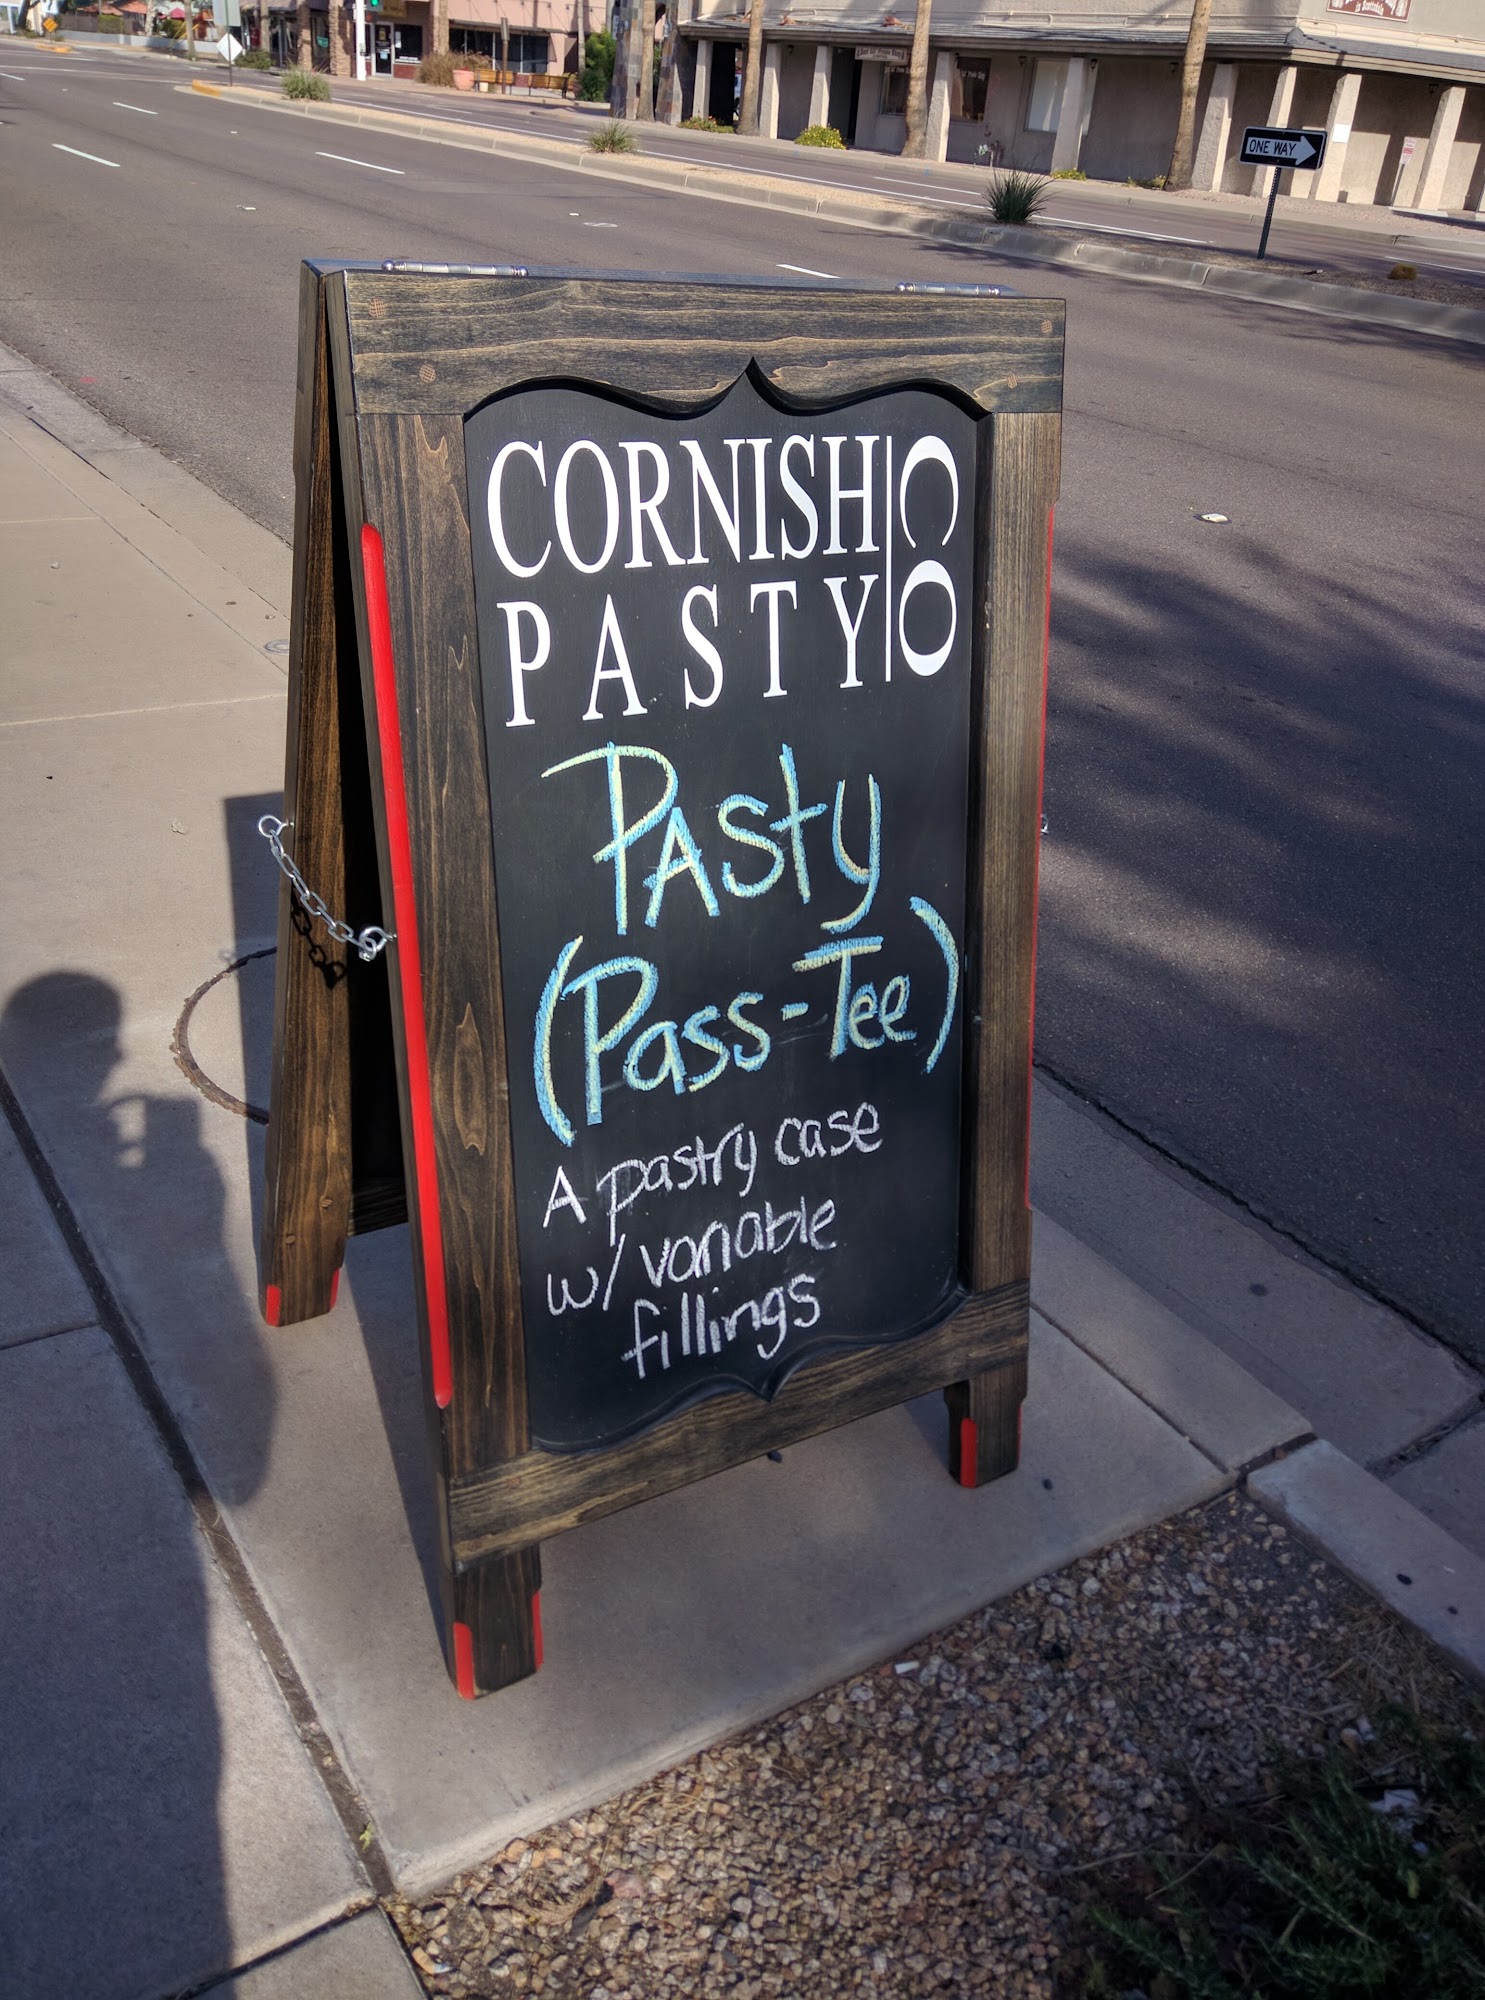 ONE WAY
CORNISH
PASTY
CO
PAsty
(Pass-Tee)
A pastry case
w/ variable
fillings